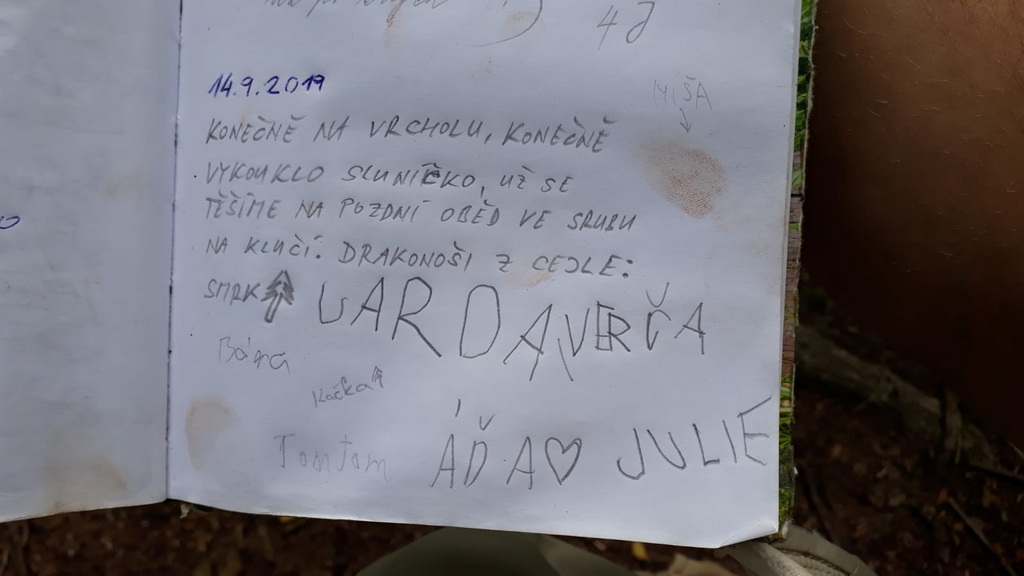 4J
14.9.2019
MÍŠA
KONEČNĚ NA VRCHOLU, KONEČNĚ
VYKOUKLO SLUNÍČKO, UŽ SE
TĚŠÍME NA POZDNÍ OBĚD VE SRUBU
NA KLUČÍ. DRAKONOŠI Z CEJLE:
SMRK VARDA, VERČA
Bára
Kačka
TomTom ÁĎA♡ JULIE